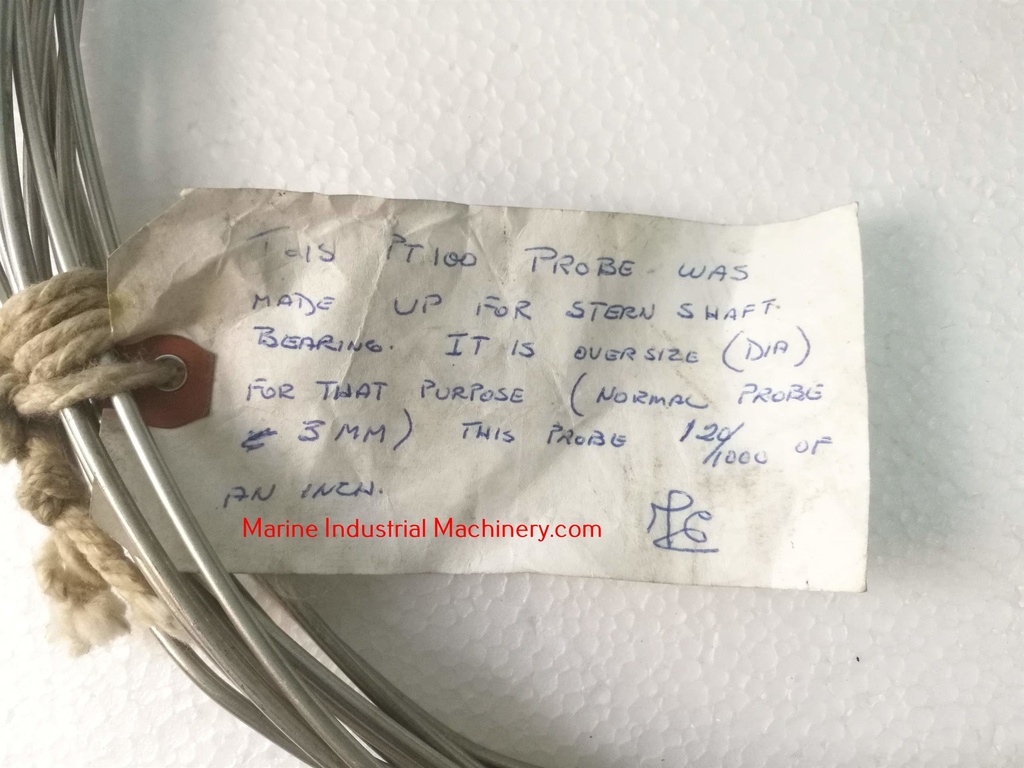 THIS PT100 PROBE WAS
MADE UP FOR STERN SHAFT.
BEARING. IT IS OVERSIZE (DIA)
FOR THAT PURPOSE (NORMAL PROBE
3 MM) THIS PROBE 120/1000 OF
AN INCH.
Marine Industrial Machinery.com